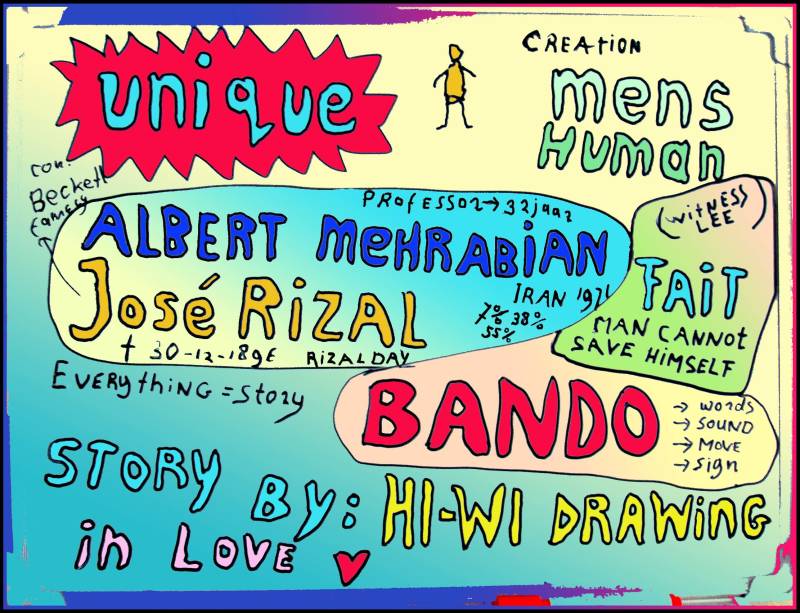 unique
CREATION
mens
HUMAN
con.
Beckett
PROFESSOR → 32jaar
ALBERT MEHRABIAN
IRAN
7% 38%
55%
José RIZAL
† 30-12-189
RIZALDAY
(WITNESS
LEE)
FAIT
MAN CANNOT
SAVE HIMSELF
EVERYthING = Story
BANDO
→ words
→ SOUND
→ MOVE
→ Sign
STORY BY: HI-WI DRAWING
in LOVE